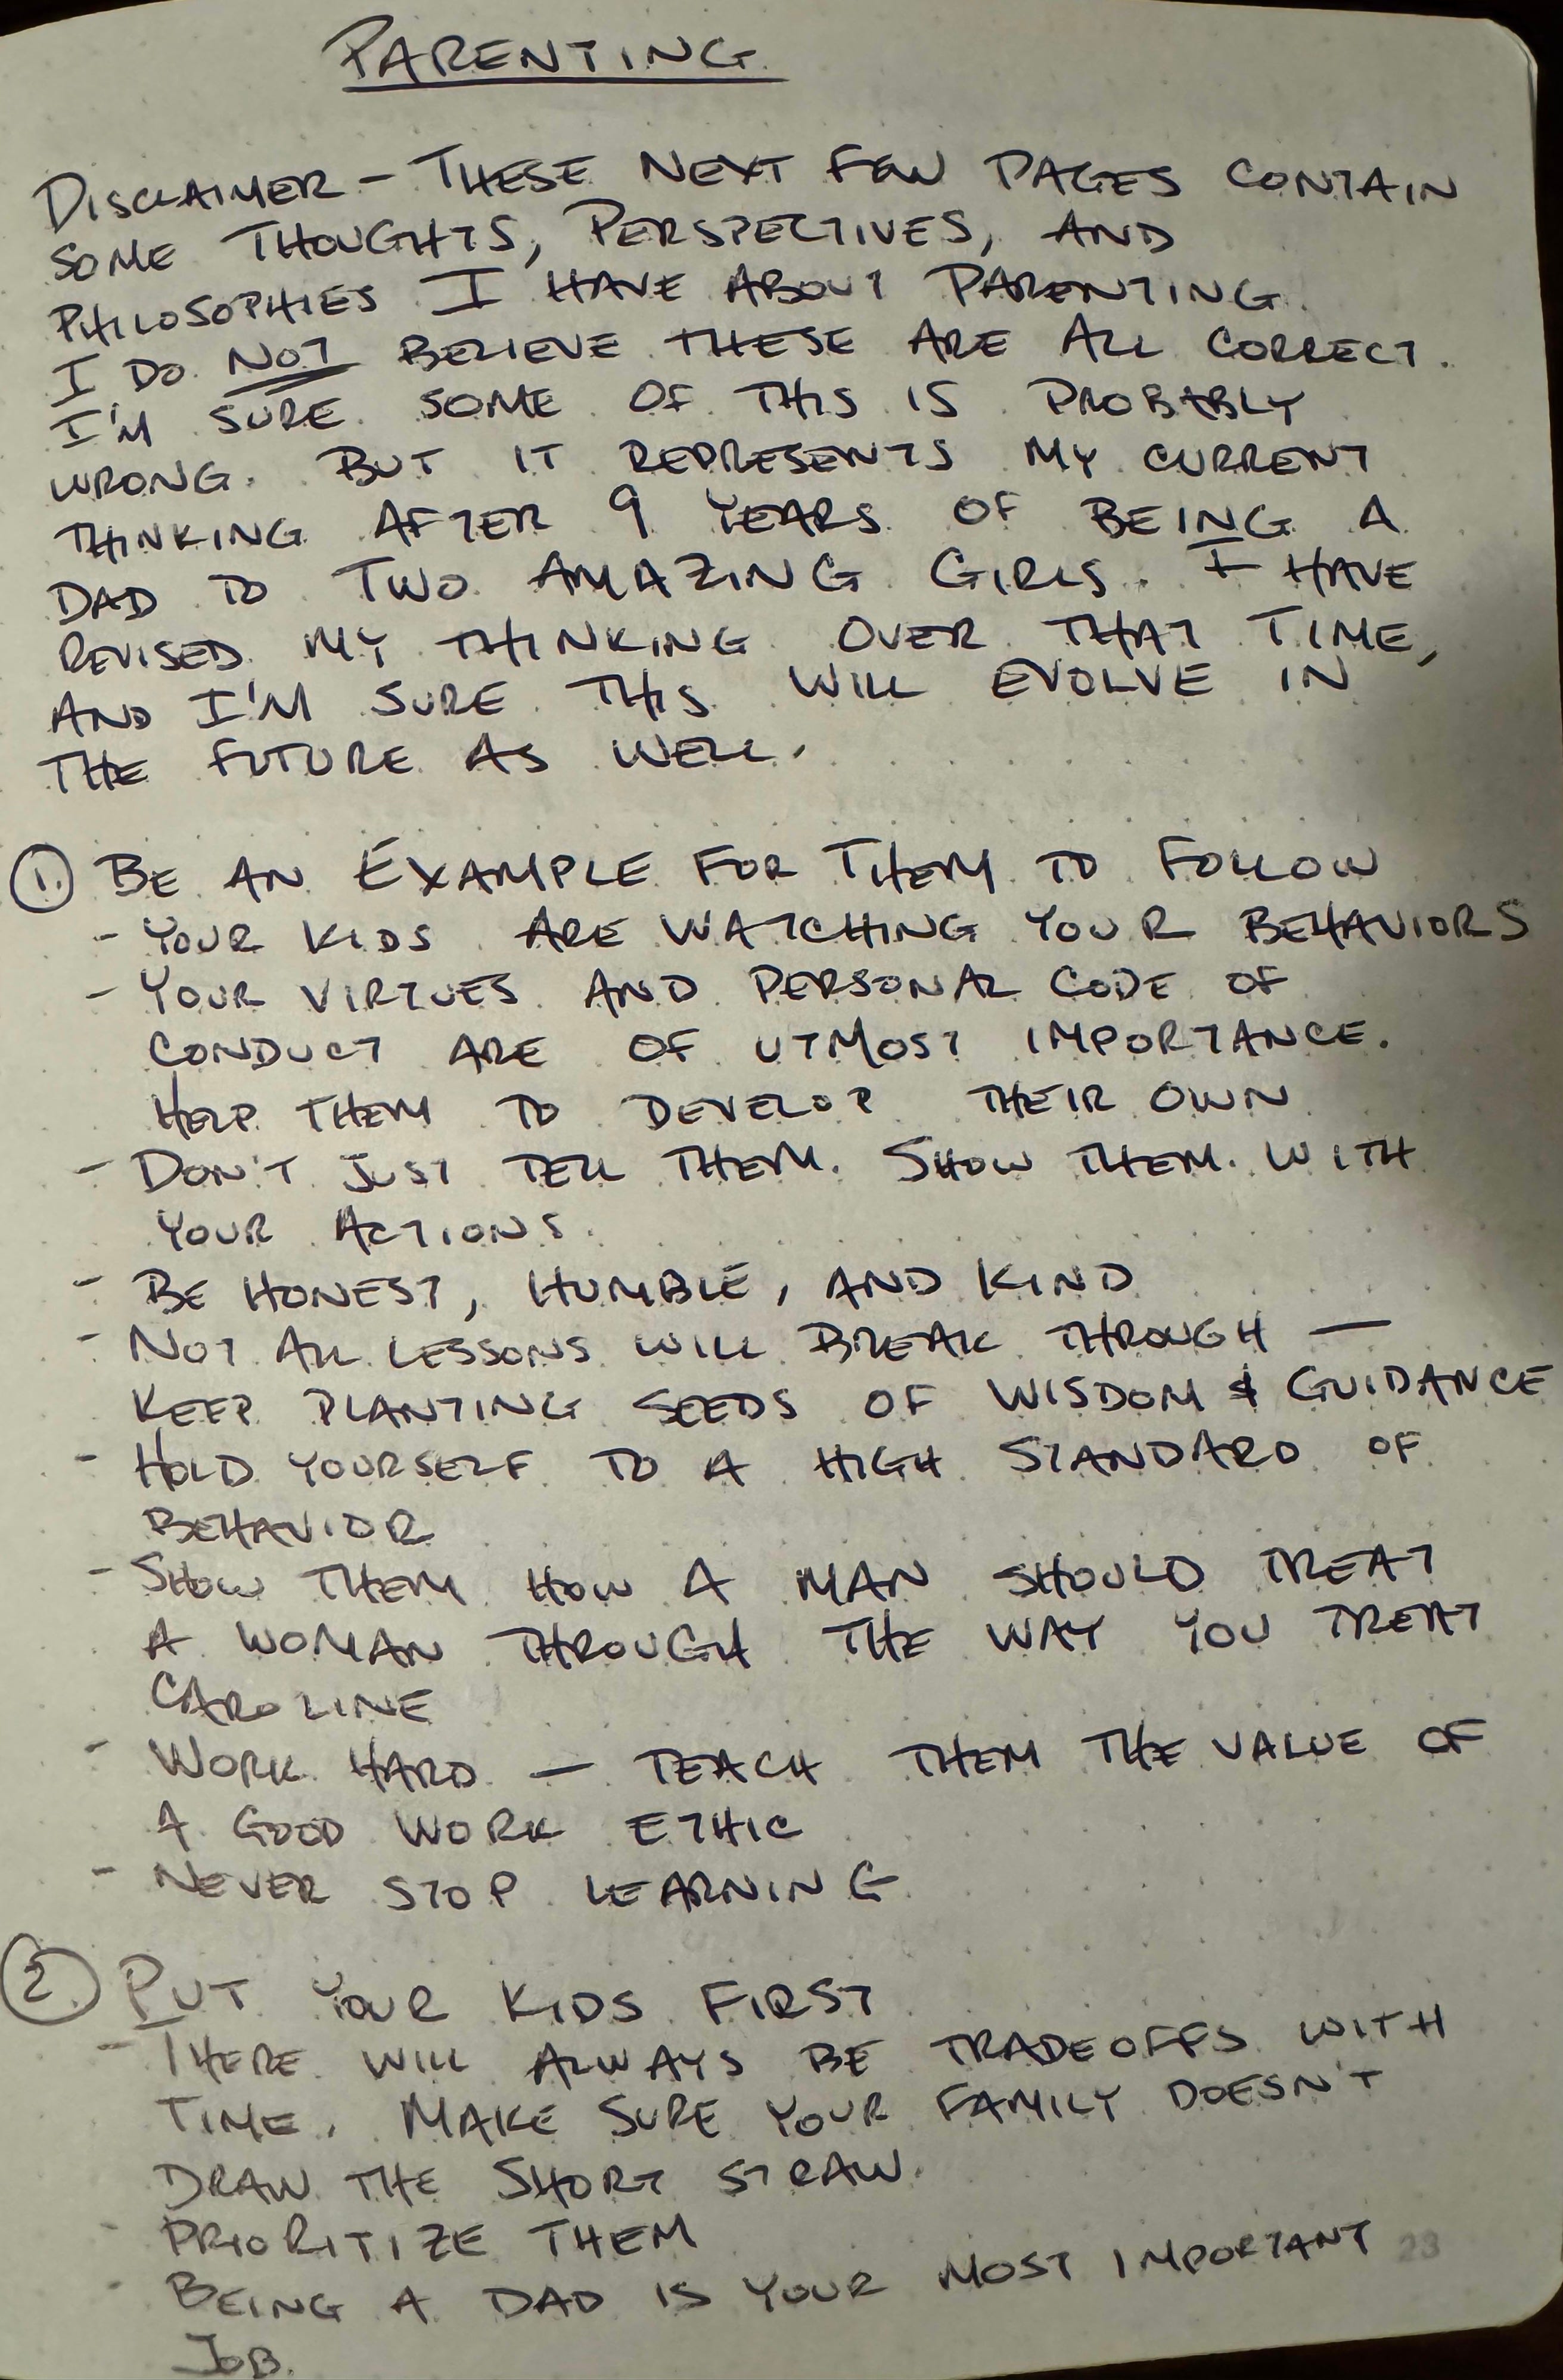 PARENTING
DISCLAIMER - THESE NEXT FEW PAGES CONTAIN
SOME THOUGHTS, PERSPECTIVES, AND
PHILOSOPHIES I HAVE ABOUT PARENTING.
I DO NOT BELIEVE THESE ARE ALL CORRECT.
I'M SURE SOME OF THIS IS PROBABLY
WRONG. BUT IT REPRESENTS MY CURRENT
THINKING AFTER 9 YEARS OF BEING A
DAD TO TWO AMAZING GIRLS. I HAVE
REVISED MY THINKING OVER THAT TIME,
AND I'M SURE THIS WILL EVOLVE IN
THE FUTURE AS WELL.
1. BE AN EXAMPLE FOR THEM TO FOLLOW
- YOUR KIDS ARE WATCHING YOUR BEHAVIORS
- YOUR VIRTUES AND PERSONAL CODE OF
CONDUCT ARE OF UTMOST IMPORTANCE.
HELP THEM TO DEVELOP THEIR OWN
- DON'T JUST TELL THEM. SHOW THEM. WITH
YOUR ACTIONS.
- BE HONEST, HUMBLE, AND KIND
- NOT ALL LESSONS WILL BREAK THROUGH —
KEEP PLANTING SEEDS OF WISDOM & GUIDANCE
- HOLD YOURSELF TO A HIGH STANDARD OF
BEHAVIOR
- SHOW THEM HOW A MAN SHOULD TREAT
A WOMAN THROUGH THE WAY YOU TREAT
CAROLINE
- WORK HARD — TEACH THEM THE VALUE OF
A GOOD WORK ETHIC
- NEVER STOP LEARNING
2. PUT YOUR KIDS FIRST
- THERE WILL ALWAYS BE TRADEOFFS WITH
TIME. MAKE SURE YOUR FAMILY DOESN'T
DRAW THE SHORT STRAW.
- PRIORITIZE THEM
- BEING A DAD IS YOUR MOST IMPORTANT
JOB.
23